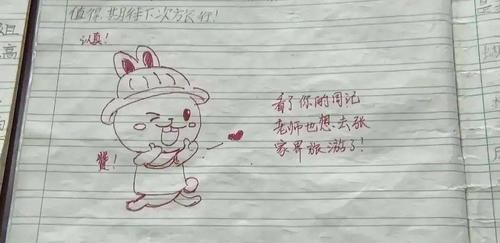 值得期待下次旅行!
认真!
看了你的周记
老师也想去张
家界旅游了!
赞!